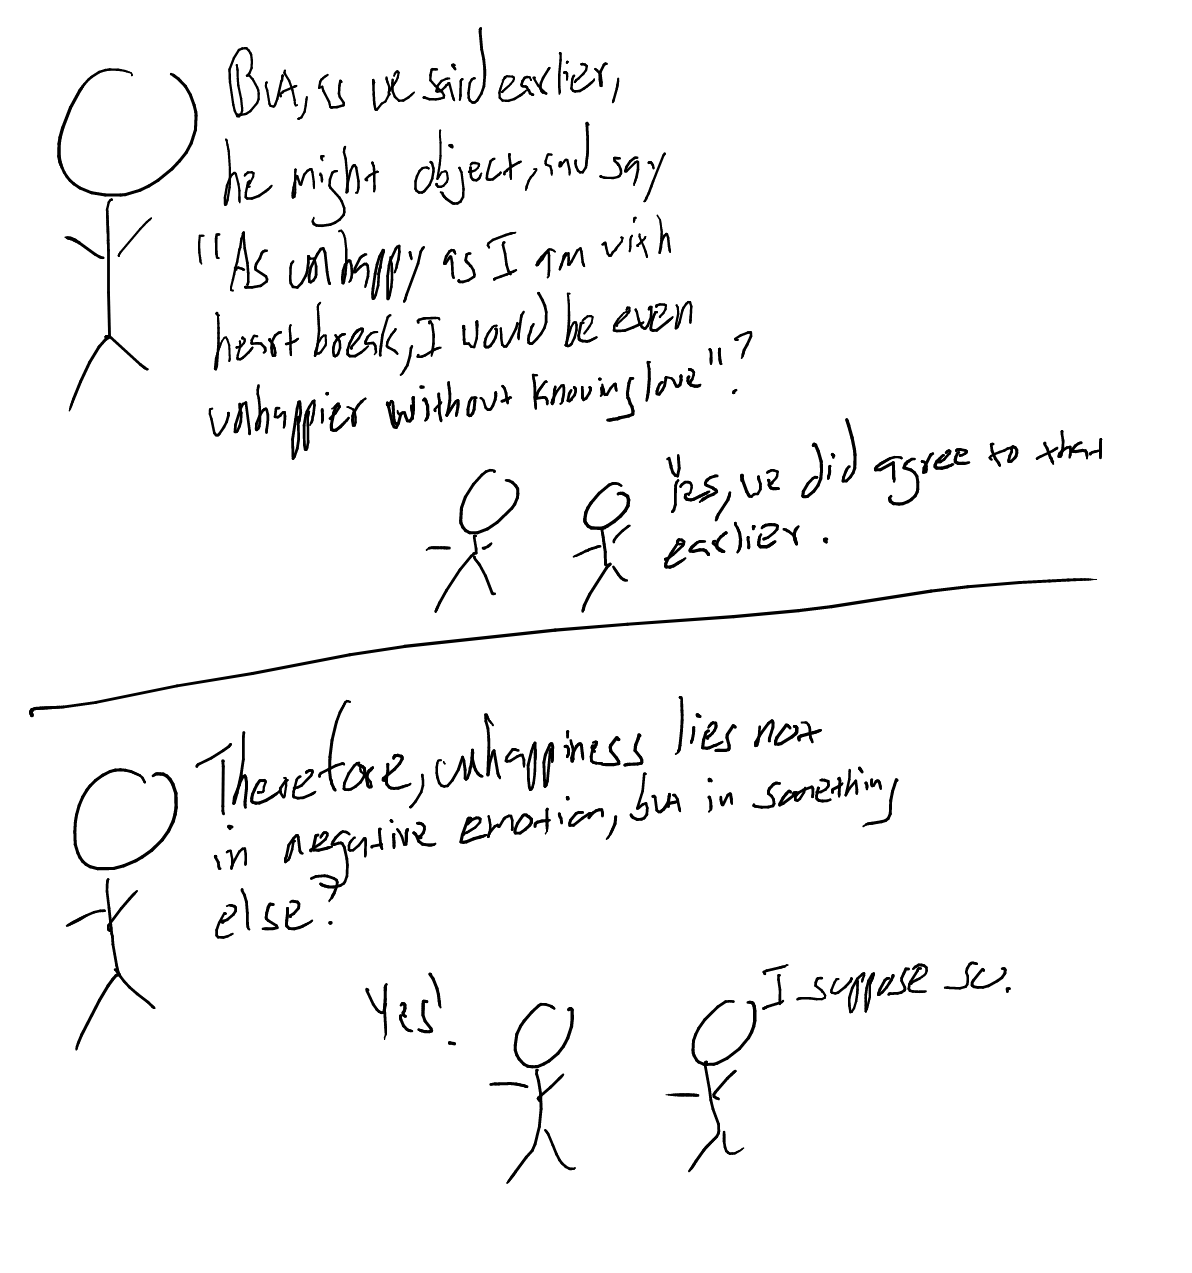 But, as we said earlier,
he might object, and say
"As unhappy as I am with
heartbreak, I would be even
unhappier without knowing love"?
Yes, we did agree to that
earlier.
Therefore, unhappiness lies not
in negative emotion, but in something
else?
Yes!
I suppose so.